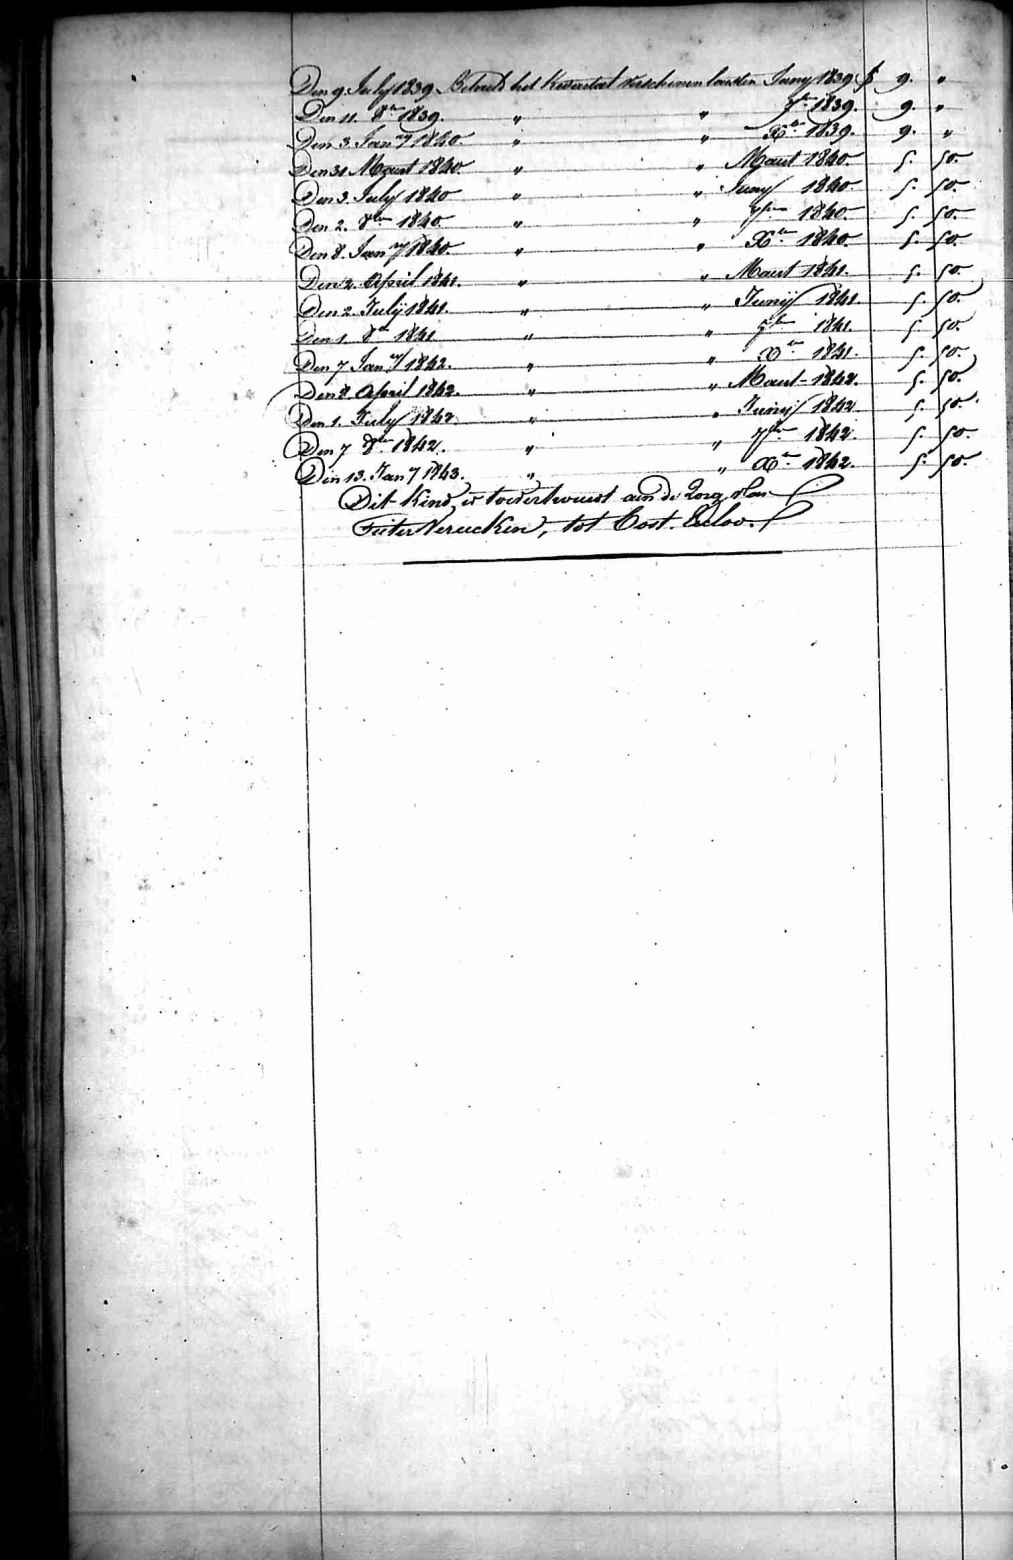 Den 9. July 1839 Betaald het Kwartaal verschenen laatsten Juny 1839 f 9. "
Den 11. 8er 1839. " " 7er 1839. 9. "
Den 3. Jany 1840. " " Xer 1839. 9. "
Den 31 Maart 1840. " " Maart 1840. 5. 50.
Den 3. July 1840 " " Juny 1840 5. 50.
Den 2. 8ber 1840. " " 7ber 1840. 5. 50.
Den 8. Jany 1840. " " Xer 1840. 5. 50.
Den 2. April 1841. " " Maart 1841. 5. 50.
Den 2. July 1841. " " Junij 1841. 5. 50.
Den 1. 8er 1841 " " 7ber 1841. 5. 50.
Den 7 Jany 1842. " " Xer 1841. 5. 50.
Den 8. April 1842. " " Maart 1842. 5. 50.
Den 1. July 1842. " " Junij 1842 5. 50.
Den 7 8ber 1842. " " 7ber 1842. 5. 50.
Den 13. Jany 1843. " " Xer 1842. 5. 50.
Dit Kind is toevertrouwd aan de Zorg van
Pieter Verucken, tot Oost. Eecloo.